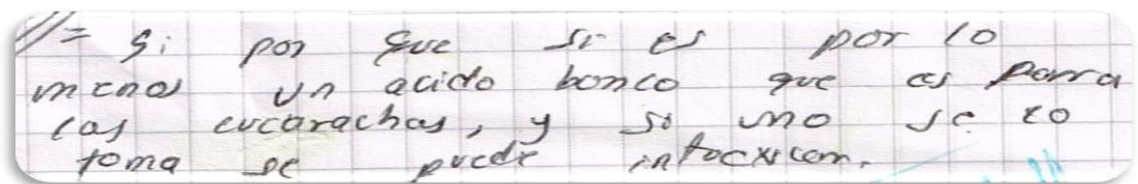 //= Si por que si es por lo
menos un acido borico que es parra
las cucarachas, y si uno se lo
toma se puede intocxicar.